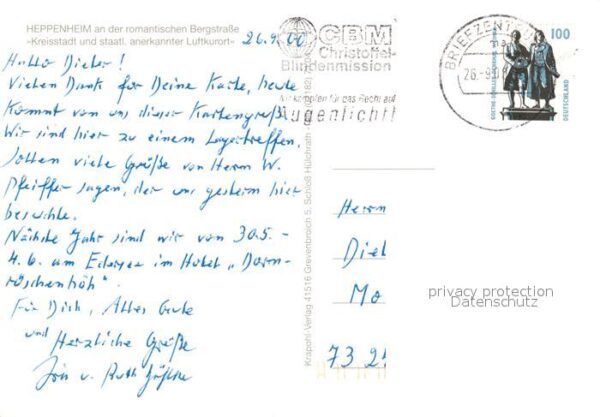 HEPPENHEIM an der romantischen Bergstraße
»Kreisstadt und staatl. anerkannter Luftkurort«
26.9.00
Hallo Dieter!
Vielen Dank für Deine Karte, heute
kommt von uns dieser Kartengruß.
Wir sind hier zu einem Lagertreffen,
sollen viele Grüße von Herrn W.
Pfeiffer sagen, der uns gestern hier
besuchte.
Nächste Jahr sind wir vom 30.5. -
4.6. am Edersee im Hotel „Dorn-
röschenhöh".
Für Dich, Alles Gute
und Herzliche Grüße
u. Ruth
CBM
Christoffel-
Blindenmission
Wir kämpfen für das Recht auf
Augenlicht!
BRIEFZENTRUM
26.-9.00
100
DEUTSCHLAND
Krapohl-Verlag 41516 Grevenbroich 5, Schloß Hülchrath
Herrn
Diet
Mo
73 2
privacy protection
Datenschutz